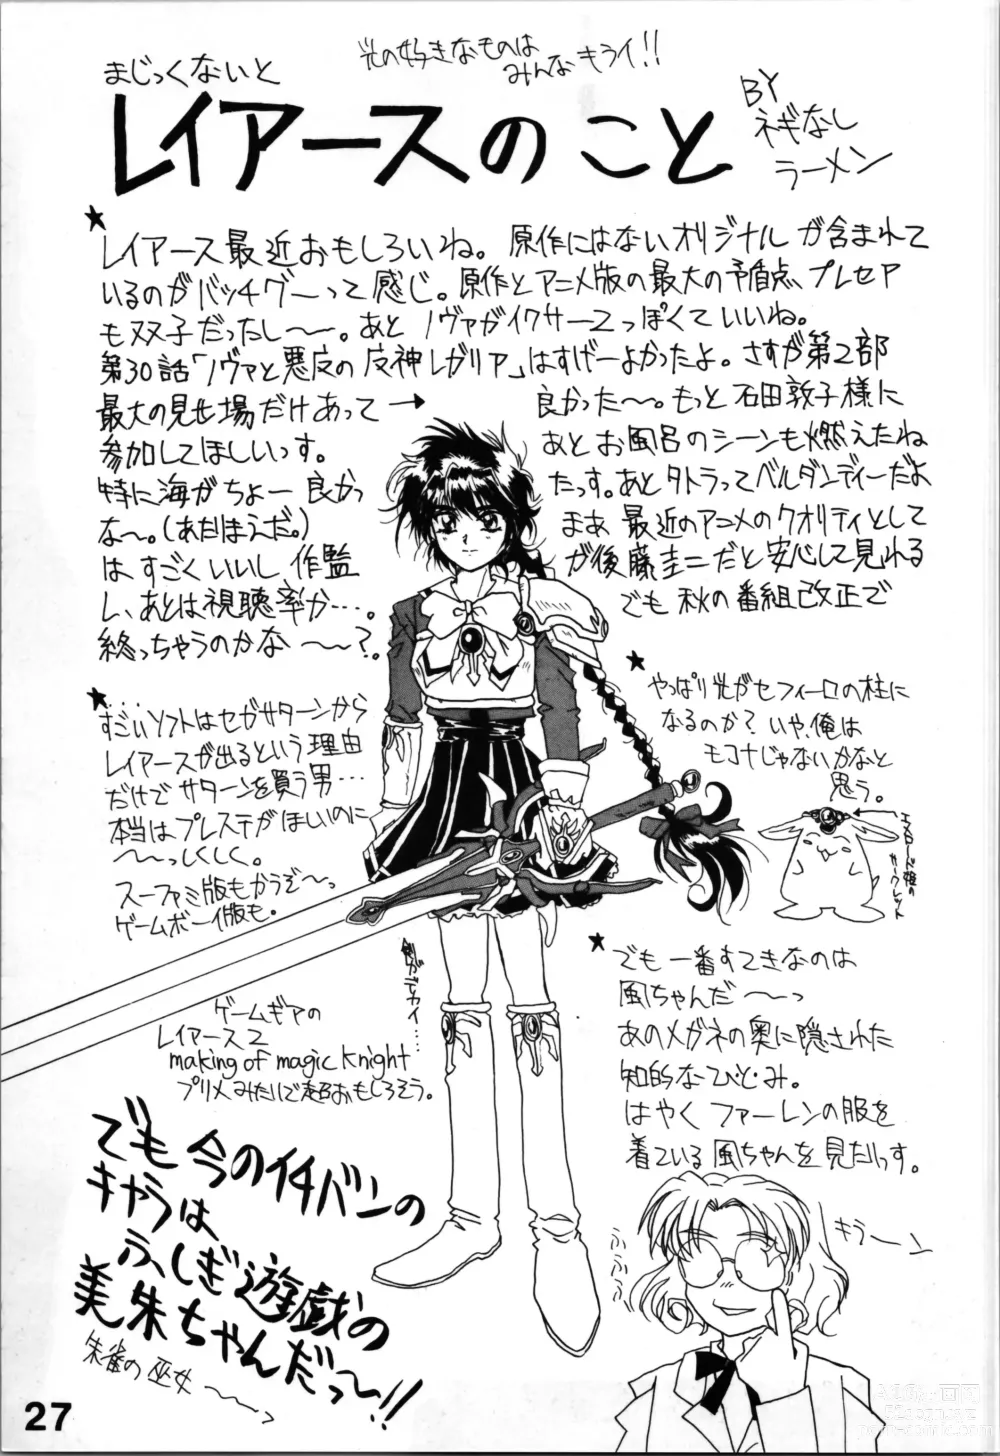 光の好きなものは
みんなキライ!!
まじっくないと
レイアースのこと
BY
ネギなし
ラーメン
★
レイアース最近おもしろいね。原作にはないオリジナルが含まれて
いるのがバッチグーって感じ。原作とアニメ版の最大の矛盾点、プレセア
も双子だったし〜〜。あとノヴァがイクサー2っぽくていいね。
第30話「ノヴァと悪夢の魔神レガリア」はすげーよかったよ。さすが第2部
最大の見せ場だけあって→
良かった〜〜。もっと石田敦子様に
参加してほしいっす。
あとお風呂のシーンも燃えたね
特に海がちょー良かっ
たっす。あとタトラってベルダンディーだよ
な〜。(あたほえだ。)
まあ最近のアニメのクオリティとして
はすごくいいし作監
が後藤圭二だと安心して見れる
し、あとは視聴率か…。
でも秋の番組改正で
終っちゃうのかな〜〜?。
★
すごいソフトはセガサターンから
レイアースが出るという理由
だけでサターンを買う男…
本当はプレステがほしいのに
〜〜っしくしく。
スーファミ版もかうぞ〜っ
ゲームボーイ版も。
★
やっぱり光がセフィーロの柱に
なるのか?いや、俺は
モコナじゃないかなと
思う。
エメロード姫の
サークレット
剣がデカイ…
ゲームギアの
レイアース2
making of magic knight
プリメみたいで超おもしろそう。
★
でも一番すてきなのは
風ちゃんだ〜〜っ
あのメガネの奥に隠された
知的なひとみ。
はやくファーレンの服を
着ている風ちゃんを見たいっす。
でも今のイチバンの
キャラは
ふしぎ遊戯の
美朱ちゃんだっ〜!!
朱雀の巫女〜〜っ
ふふふ
キラーン
27